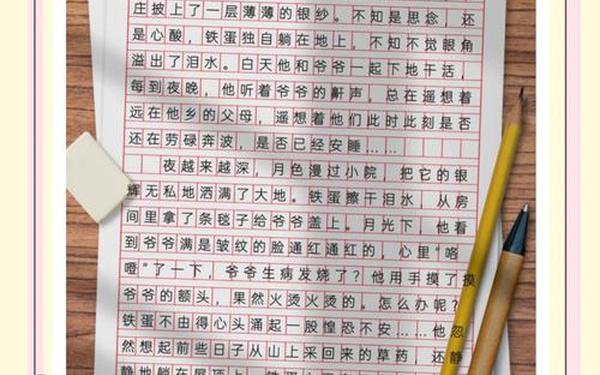 庄披上了一层薄薄的银纱。不知是思念，还
是心酸，铁蛋独自躺在地上，不知不觉眼角
溢出了泪水。白天他和爷爷一起下地干活，
每到夜晚，他听着爷爷的鼾声，总在遥想着
远在他乡的父母，遥想着他们此时此刻是否
还在劳碌奔波，是否已经安睡……
夜越来越深，月色漫过小院，把它的银
辉无私地洒满了大地。铁蛋擦干泪水，从房
间里拿了条毯子给爷爷盖上。月光下，他看
到爷爷满是皱纹的脸通红通红的，心里“咯
噔”了一下，爷爷生病发烧了？他用手摸了摸
爷爷的额头，果然火烫火烫的。怎么办呢？
铁蛋不由得心头涌起一股惶恐不安……他忽
然想起前些日子从山上采回来的草药，还静
静地躺在屋顶上，铁蛋